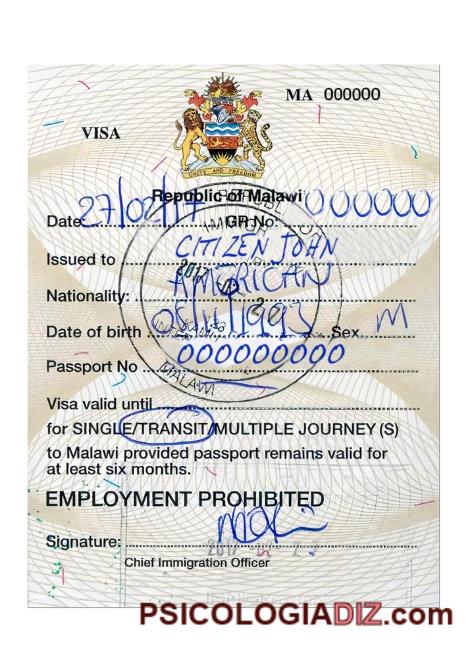 MA 000000
VISA
UNITE AND FREEDOM
Republic of Malawi
Date 27/02/17 GR No: 000000
Issued to CITIZEN JOHN
Nationality: AMERICAN
Date of birth 05/11/1993 Sex M
Passport No 000000000
MALAWI
Visa valid until
for SINGLE/TRANSIT/MULTIPLE JOURNEY(S)
to Malawi provided passport remains valid for
at least six months.
EMPLOYMENT PROHIBITED
Signature:
Chief Immigration Officer
PSICOLOGIADIZ.com